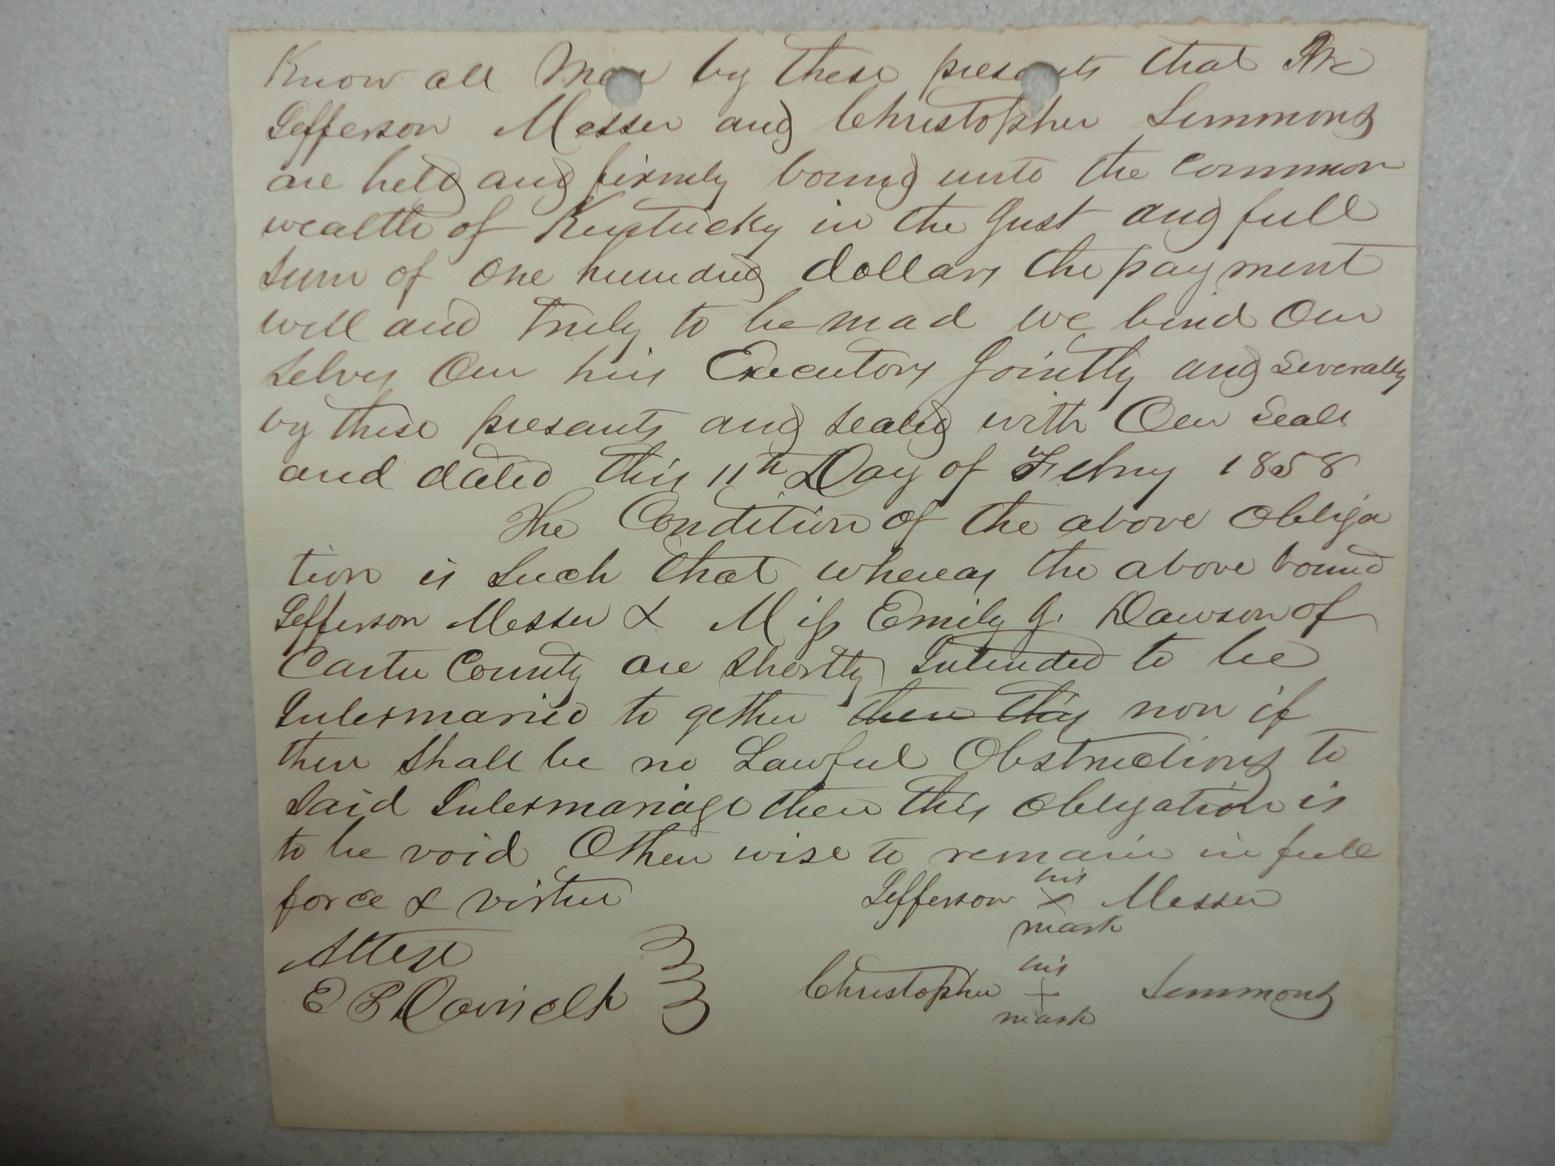 Know all Men by these presents that We
Jefferson Messer and Christopher Simmons
are held and firmly bound unto the common
wealth of Kentucky in the Just and full
Sum of One hundred dollars the payment
will and truly to be mad we bind Our
selves Our hirs Executors Jointly and Severally
by these presants and sealed with Our Seals
and dated this 11th Day of Febry 1858
The Condition of the above Obliga
tion is Such that whereas the above bound
Jefferson Messer & Miss Emily J. Dawson of
Carter County are shortly Intended to be
Intermaried to gether then this now if
ther Shall be no Lawful Obstructions to
Said Intermariage then this Obligation is
to be void Other wise to remain in full
force & virtue
Jefferson his X mark Messer
Attest
Christopher his + mark Simmons